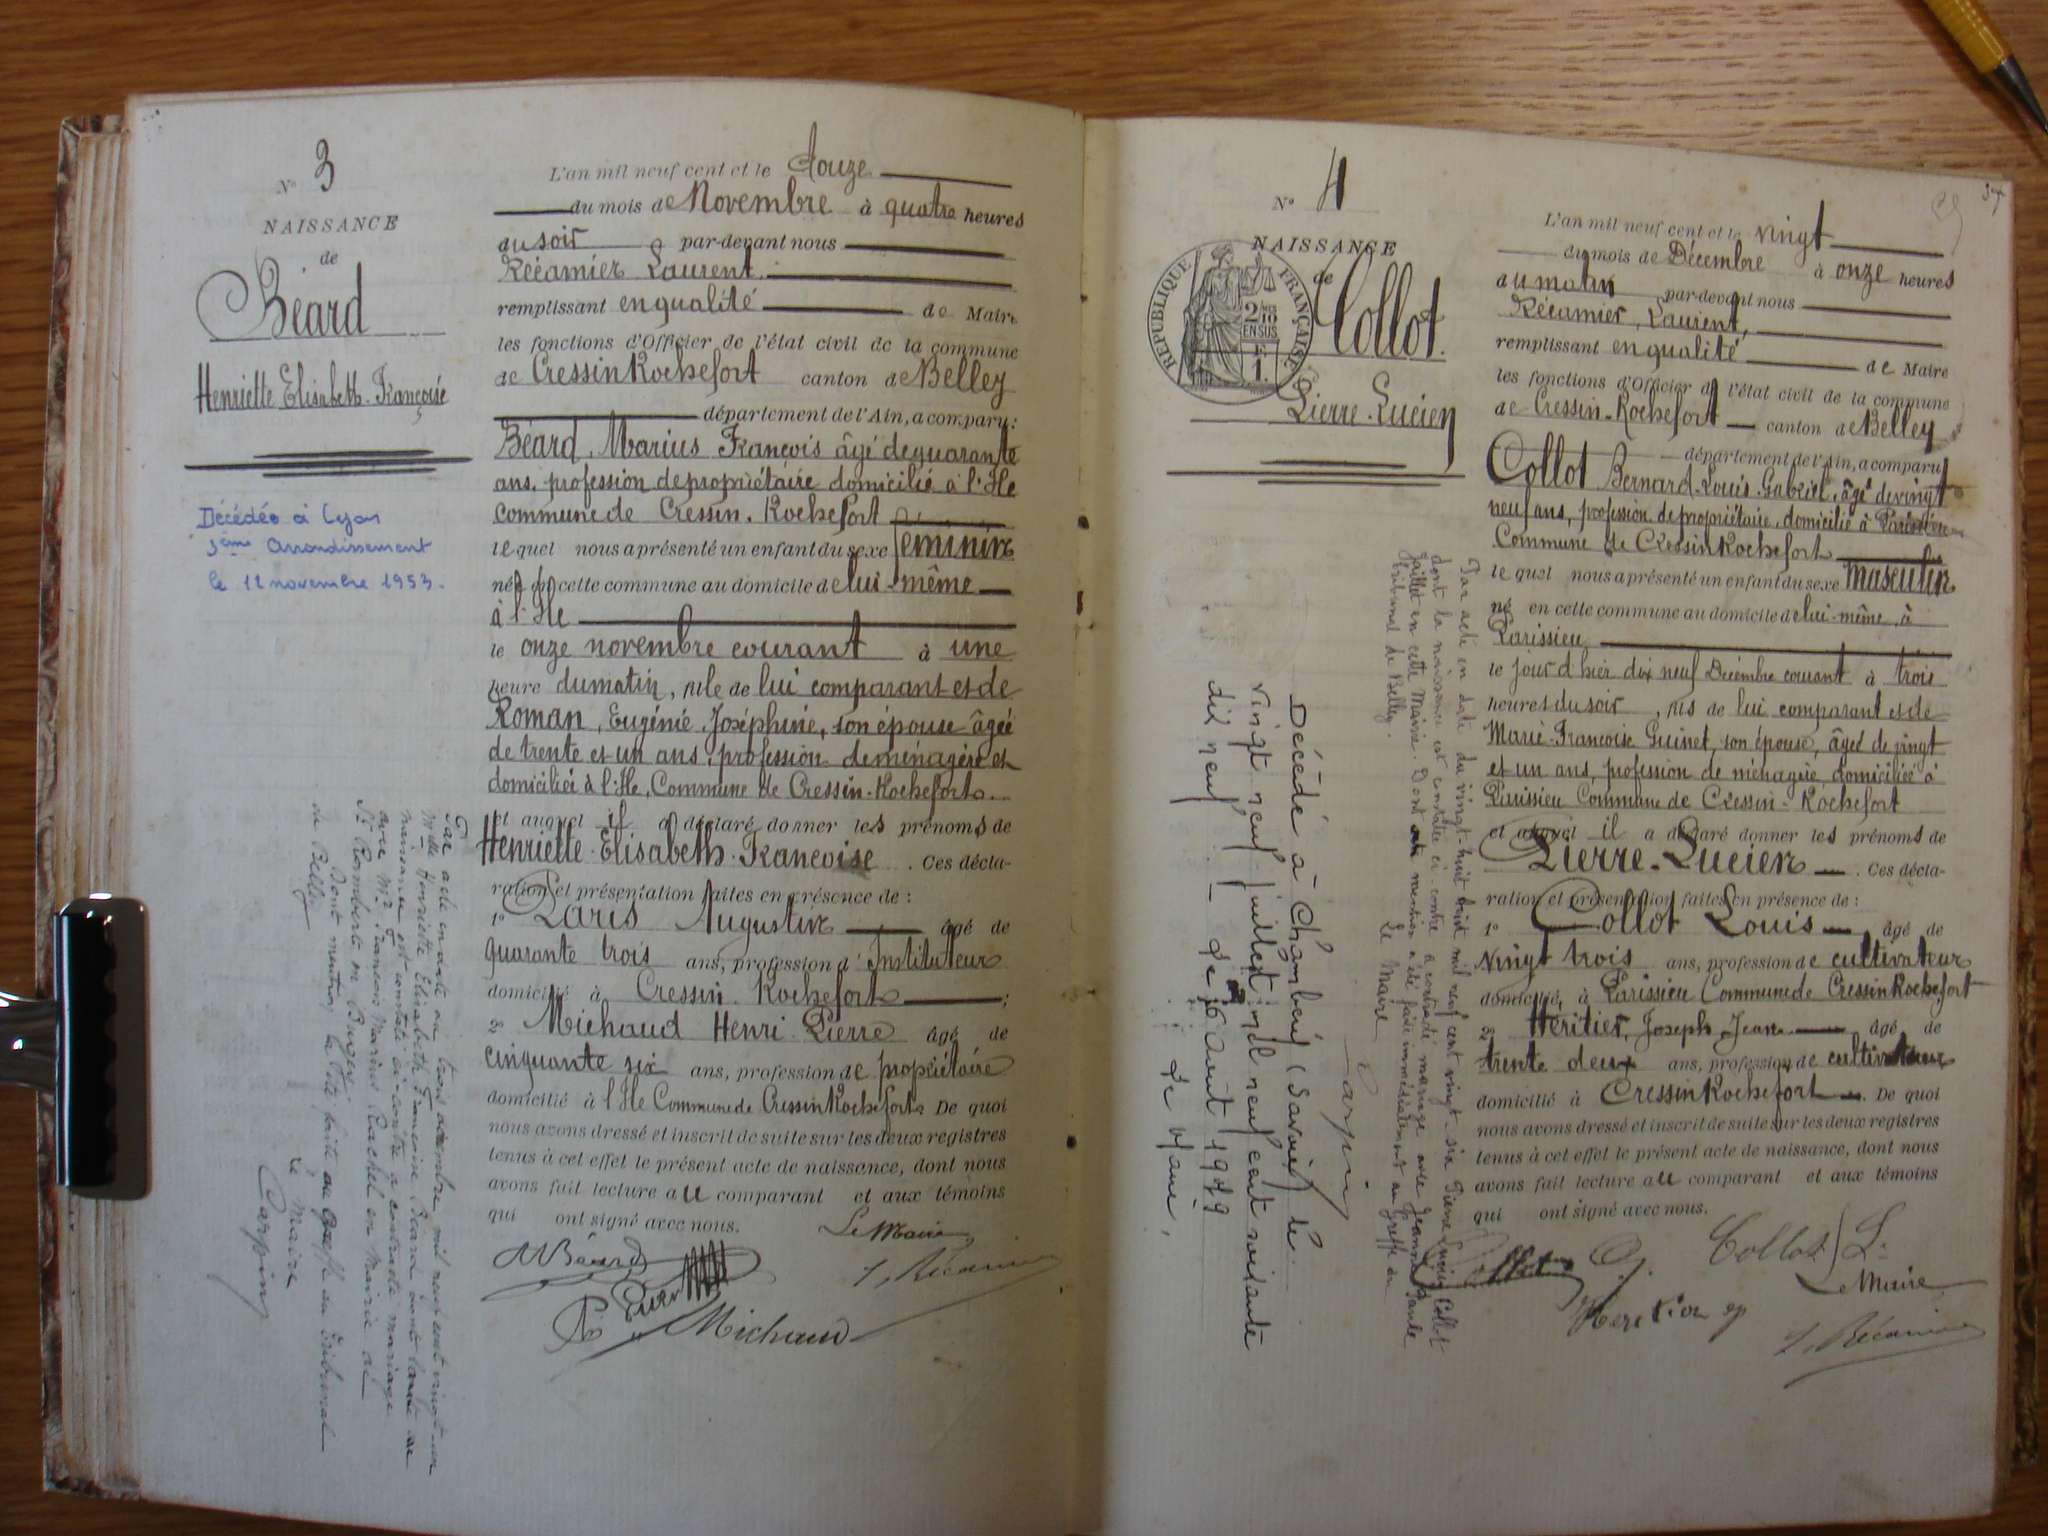 N° 3
NAISSANCE
de
Béard
Henriette Elisabeth-Françoise
Décédée à Lyon
3ème Arrondissement
le 11 novembre 1953.
L'an mil neuf cent et le douze
du mois de Novembre à quatre heures
du soir par-devant nous
Récamier Laurent
remplissant en qualité de Maire
les fonctions d'Officier de l'état civil de la commune
de Cressin Rochefort canton de Belley
département de l'Ain, a comparu:
Béard, Marius François âgé de quarante
ans, profession de propriétaire domicilié à l'Ile
Commune de Cressin-Rochefort
lequel nous a présenté un enfant du sexe féminin
né en cette commune au domicile de lui-même
à l'Ile
le onze novembre courant à une
heure du matin, fille de lui comparant et de
Roman, Eugénie Joséphine, son épouse âgée
de trente et un ans, profession de ménagère et
domiciliée à l'Ile, Commune de Cressin-Rochefort
et auquel il a déclaré donner les prénoms de
Henriette-Elisabeth-Françoise. Ces décla-
ration et présentation faites en présence de :
1° Paris Augustin âgé de
quarante trois ans, profession d'Instituteur
domicilié à Cressin Rochefort ;
2° Michaud Henri Pierre âgé de
cinquante six ans, profession de propriétaire
domicilié à l'Ile Commune de Cressin Rochefort. De quoi
nous avons dressé et inscrit de suite sur les deux registres
tenus à cet effet le présent acte de naissance, dont nous
avons fait lecture au comparant et aux témoins
qui ont signé avec nous.
Le Maire
M Béard
L. Récamier
Michaud
Par acte en date du trois
Mlle Henriette Elisabeth Françoise Béard dont l'acte de
naissance est constaté ci-contre a contracté mariage
avec Mr François Marius Rachel en Mairie de
St Rambert en Bugey.
Dont mention a été faite au Greffe du Tribunal
de Belley
Le Maire
Carpin
37
N° 4
NAISSANCE
de
Collot
Pierre-Lucien
REPUBLIQUE FRANÇAISE
2/10
EN SUS
F.
1.
L'an mil neuf cent et le vingt
du mois de Décembre à onze heures
du matin par-devant nous
Récamier, Laurent,
remplissant en qualité de Maire
les fonctions d'Officier de l'état civil de la commune
de Cressin-Rochefort canton de Belley
département de l'Ain, a comparu
Collot Bernard-Louis-Gabriel, âgé de vingt
neuf ans, profession de propriétaire, domicilié à Parissieu
Commune de Cressin Rochefort
lequel nous a présenté un enfant du sexe masculin
né en cette commune au domicile de lui-même, à
Parissieu
le jour d'hier dix neuf Décembre courant à trois
heures du soir, fils de lui comparant et de
Marie-Françoise Guinet, son épouse, âgée de vingt
et un ans, profession de ménagère, domiciliée à
Parissieu Commune de Cressin-Rochefort
et auquel il a déclaré donner les prénoms de
Pierre-Lucien. Ces décla-
ration et présentation faites en présence de :
1° Collot Louis âgé de
Vingt trois ans, profession de cultivateur
domicilié à Parissieu Commune de Cressin Rochefort
2° Héritier, Joseph Jean âgé de
trente deux ans, profession de cultivateur
domicilié à Cressin Rochefort. De quoi
nous avons dressé et inscrit de suite sur les deux registres
tenus à cet effet le présent acte de naissance, dont nous
avons fait lecture au comparant et aux témoins
qui ont signé avec nous.
Collot L.
Le Maire
Heritier
L. Récamier
Par acte en date du vingt-huit Août mil neuf cent vingt-six Pierre Lucien Collot
dont la naissance est constatée ci-contre a contracté mariage avec Jeanne
Jaillet en cette Mairie. Dont mention a été faite immédiatement au Greffe du
Tribunal de Belley.
Le Maire
Carpin
Décédé à Chambéry (Savoie) le
vingt neuf juillet mil neuf cent soixante
dix neuf. Le 16 Août 1979
Le Maire,